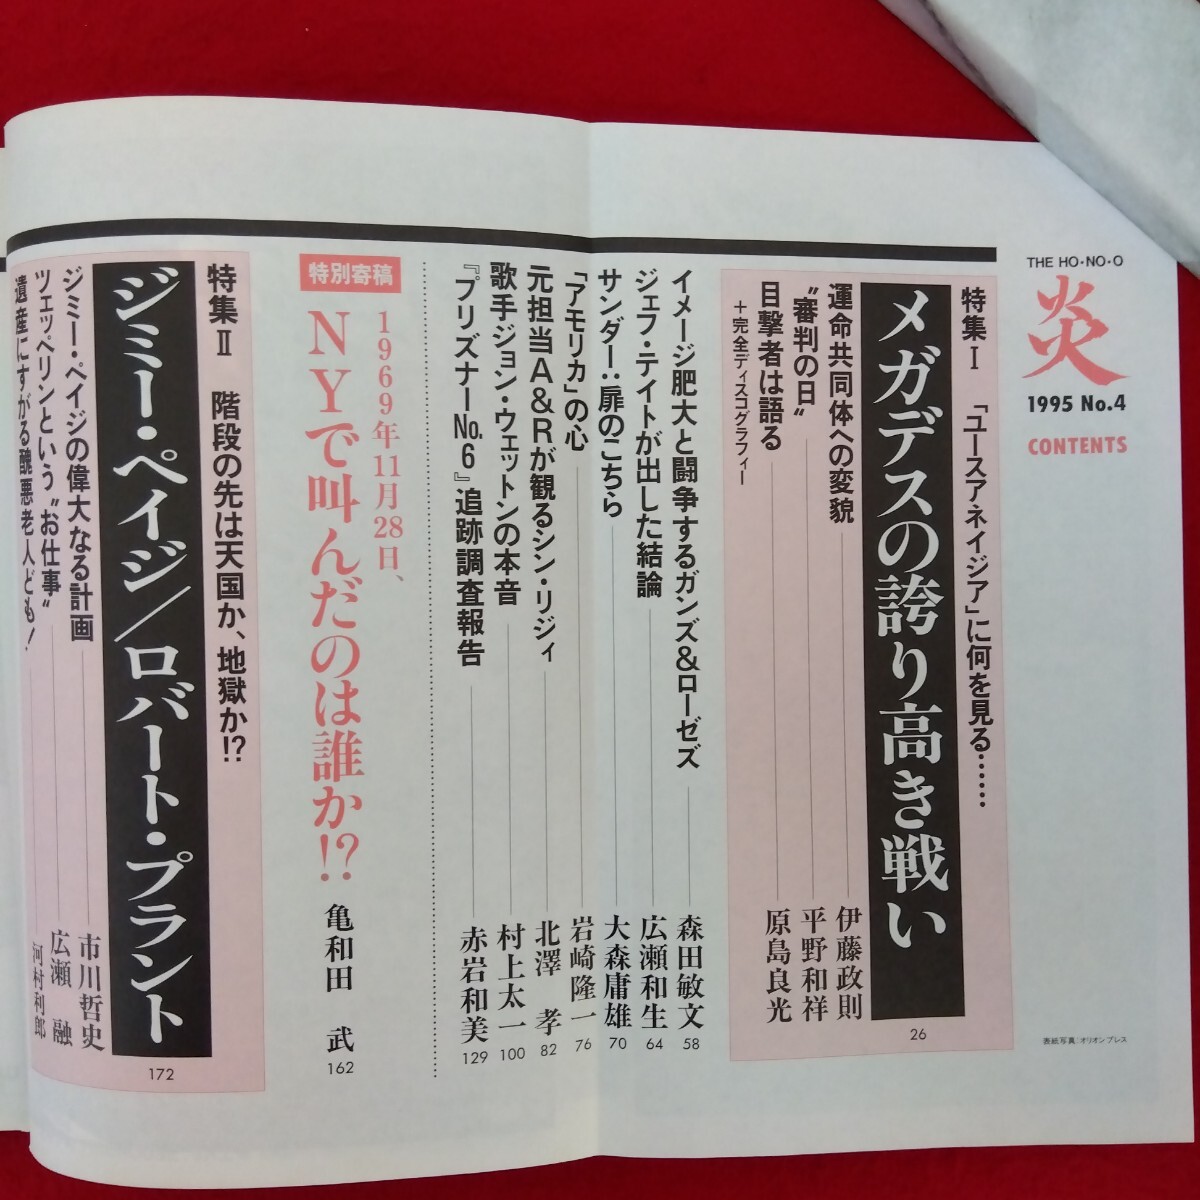 THE HO・NO・O
炎
1995 No.4
CONTENTS
特集Ⅰ 「ユースアネイジア」に何を見る……
メガデスの誇り高き戦い
26
運命共同体への変貌 伊藤政則
“審判の日” 平野和祥
目撃者は語る 原島良光
＋完全ディスコグラフィー
イメージ肥大と闘争するガンズ&ローゼズ 森田敏文 58
ジェフ・テイトが出した結論 広瀬和生 64
サンダー：扉のこちら 大森庸雄 70
「アモリカ」の心 岩崎隆一 76
元担当A&Rが観るシン・リジィ 北澤 孝 82
歌手ジョン・ウェットンの本音 村上太一 100
『プリズナーNo.6』追跡調査報告 赤岩和美 129
特別寄稿
1969年11月28日、
NYで叫んだのは誰か!?
亀和田 武
162
特集Ⅱ 階段の先は天国か、地獄か!?
ジミー・ペイジ／ロバート・プラント
172
ジミー・ペイジの偉大なる計画 市川哲史
ツェッペリンという“お仕事” 広瀬 融
遺産にすがる醜悪老人ども！ 河村利郎
表紙写真：オリオンプレス